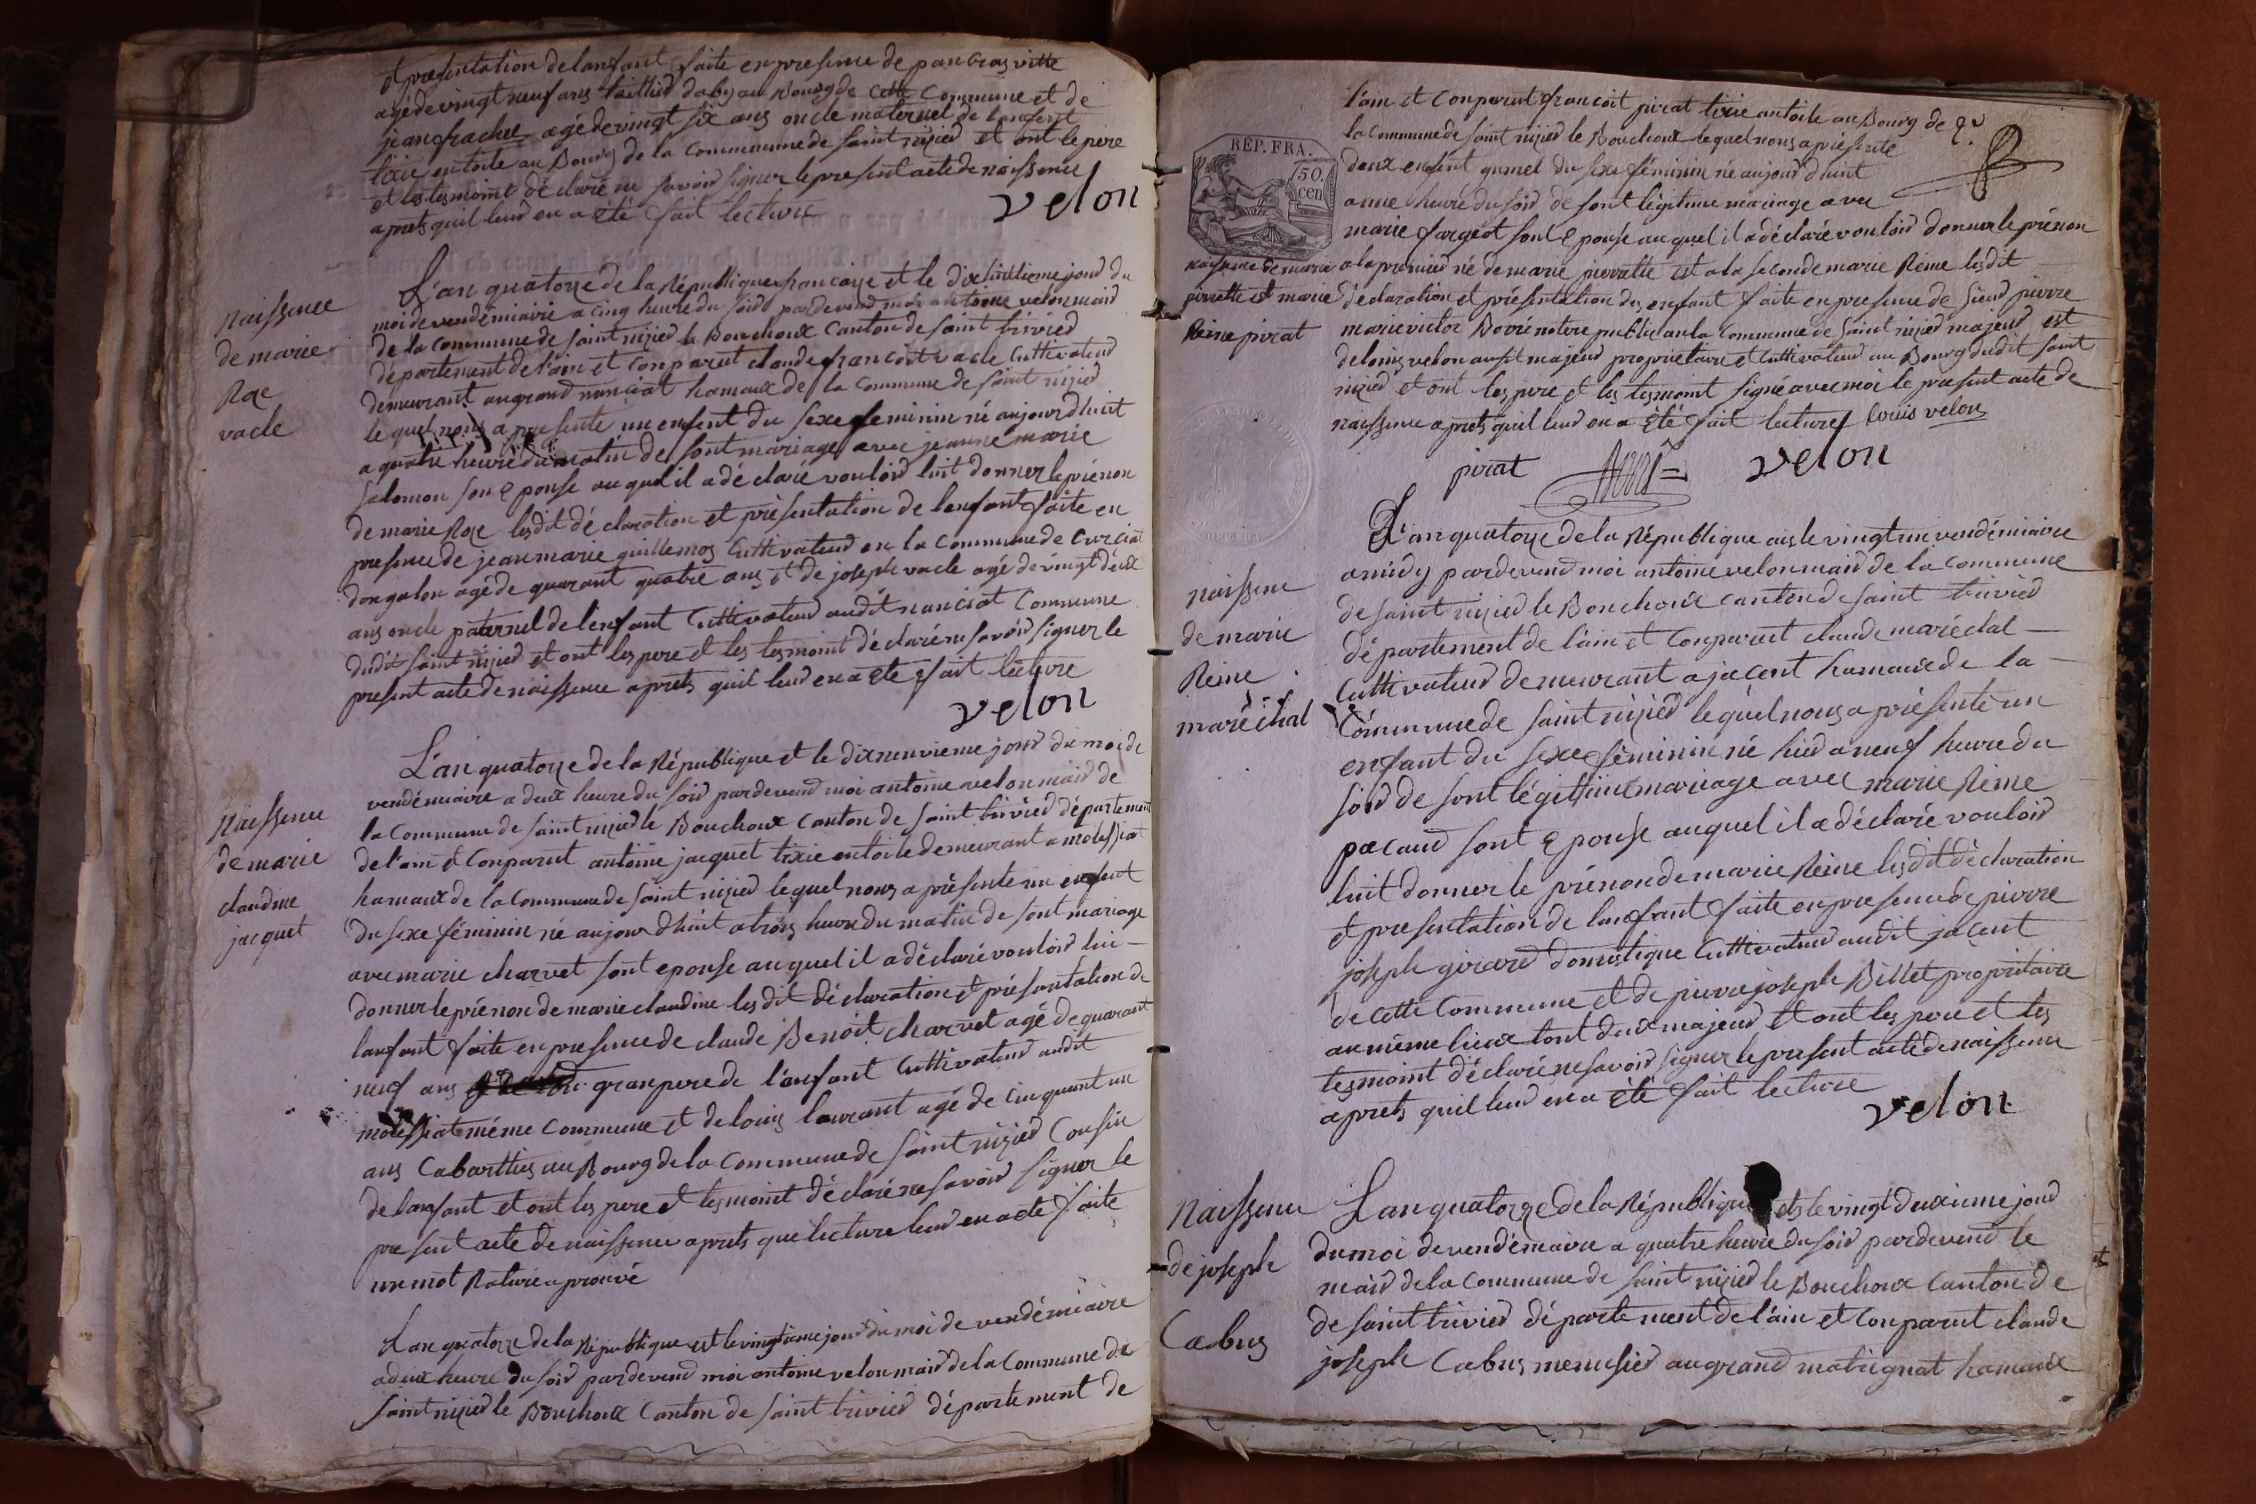 et presentation de lanfant faite en presence de pancras ville
agé de vingt neuf ans taillied daby au Bourg de cette Commune et de
jean frachet agé de vingt six ans oncle maternel de lanfent
tixie en toile au Bourg de la Commumune de saint nizied et ont le pere
et les tesmoint déclaré ne savoid signer le present acte de naissence
aprets quil leud en a été fait lecture
velon
Naissence
de marie
Roze
vacle
L'an quatorze de la République francaize et le dix huitieme joud du
moi de vendémiaire a cinq heure du soid pardevend moi antoine velon maid
de la Commune de saint nizied le Bouchoux Canton de saint trivied
département de l'ain et Conparut claude francoit vacle Cultivateud
demeurant au grand nanciat hamaux de la Commune de saint nizied
le quel nous a presenté un enfent du sexe feminin né aujourdhuit
a quatre heure du matin de sont mariage avec jeanne marie
salomon son Epouse au quel il a déclaré vouloid luit donner le prénon
de marie Roze lesdit déclaration et présentation de lenfant faite en
presence de jean marie guillemoz Cultivateud en la Commune de Curciat
dongalon agé de quarant quatre ans et de joseph vacle agé de vingt deux
ans oncle paternel de lenfant Cultivateud audit nanciat Commune
dudit saint nizied et ont les pere et les tesmoint déclaré ne savoid signer le
present acte de naissence aprets quil leud en a Eté fait lecture
velon
Naissence
de marie
claudine
jacquet
L'an quatorze de la République et le dix neuvieme joud du moi de
vendémiaire a deux heure du soid pardevend moi antoine velon maid de
la Commune de saint nizied le Bouchoux Canton de saint trivied département
de l'ain et Conparut antoine jacquet tixie en toile demeurant a molissiat
hamaux de la Commune de saint nizied lequel nous a présenté un enfent
du sexe féminin né aujourdhuit a trois heure du matin de sont mariage
avec marie charvet sont epouse au quel il a déclaré vouloid lui
donner le prénon de marie claudine lesdit déclaration et présentation de
lanfant faite en presence de claude Benoit charvet agé de quarant
neuf ans granpere de l'anfant Cultivateud audit
molissiat méme Commune et de louis laurant agé de Cinquant un
ans Cabartties au Bourg de la Commune de saint nizied Cousin
de lanfant et ont les pere et tesmoint déclaré ne savoid signer le
present acte de naissence aprets que lecture leud en a été faite
un mot Rature aprouvé
L'an quatorze de la République et le vingtieme joud du moi de vendémiaire
a deux heure du soid pardevend moi antoine velon maid de la Commune de
saint nizied le Bouchoux Canton de saint trivied département de
l'ain et Conparut francoit pirat tixie antoile au Bourg de
la Commune de saint nizied le Bouchoux lequel nous a présenté
deux enfent gumel du sexe féminin né aujourdhuit
a une heure du soid de sont légitime mariage avec
marie fargeot sont Epouse au quel il a déclaré vouloid donner le prénon
RÉP. FRA.
50.
cen
naissence de marie
pierrette et marie
Reine pirat
a la premied né de marie pierrette et a la seconde marie Reine lesdit
déclaration et présentation des enfant faite en presence de sieud pierre
marie victor Bovié notere public an la Commune de saint nizied majeud et
de louis velon ausit majeud proprietaire et Cultivateud au Bourg dudit saint
nizied et ont les pere et les tesmoint signé avec moi le present acte de
naissence aprets quil leud en a Eté fait lecture louis velon
pirat velon
naissence
de marie
Reine
maréchal
L'an quatorze de la République et le vingt un vendémiaire
a midy pardevend moi antoine velon maid de la Commune
de saint nizied le Bouchoux canton de saint trivied
département de l'ain et Conparut claude maréchal
Cultivateud demeurant a jacent hamaux de la
Commune de saint nizied le quel nous a présenté un
enfant du sexe féminin né hied a neuf heure du
soid de sont légitime mariage avec marie Reine
pacaud sont Epouse au quel il a déclaré vouloid
luit donner le prénon de marie Reine lesdit déclaration
et presentation de lanfant faite en presence de pierre
joseph girard domestique Cultivateud audit jacent
de cette Commune et de pierre joseph Billet propritaire
au méme lieux tout deux majeud et ont les pere et les
tesmoint déclaré ne savoid signer le present acte de naissence
aprets quil leud en a Eté fait lecture
velon
Naissence
de joseph
Cabus
L'an quatorze de la République et le vingt deuxieme joud
du moi de vendémiaire a quatre heure du soid pardevend le
maid de la Commune de saint nizied le Bouchoux Canton de
de saint trivied département de l'ain et Conparut claude
joseph Cabus menusied au grand matrignat hamaux